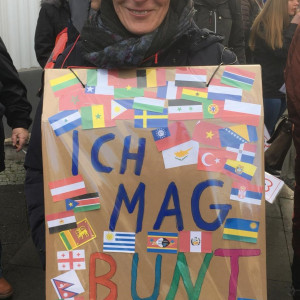 ICH
MAG
BUNT